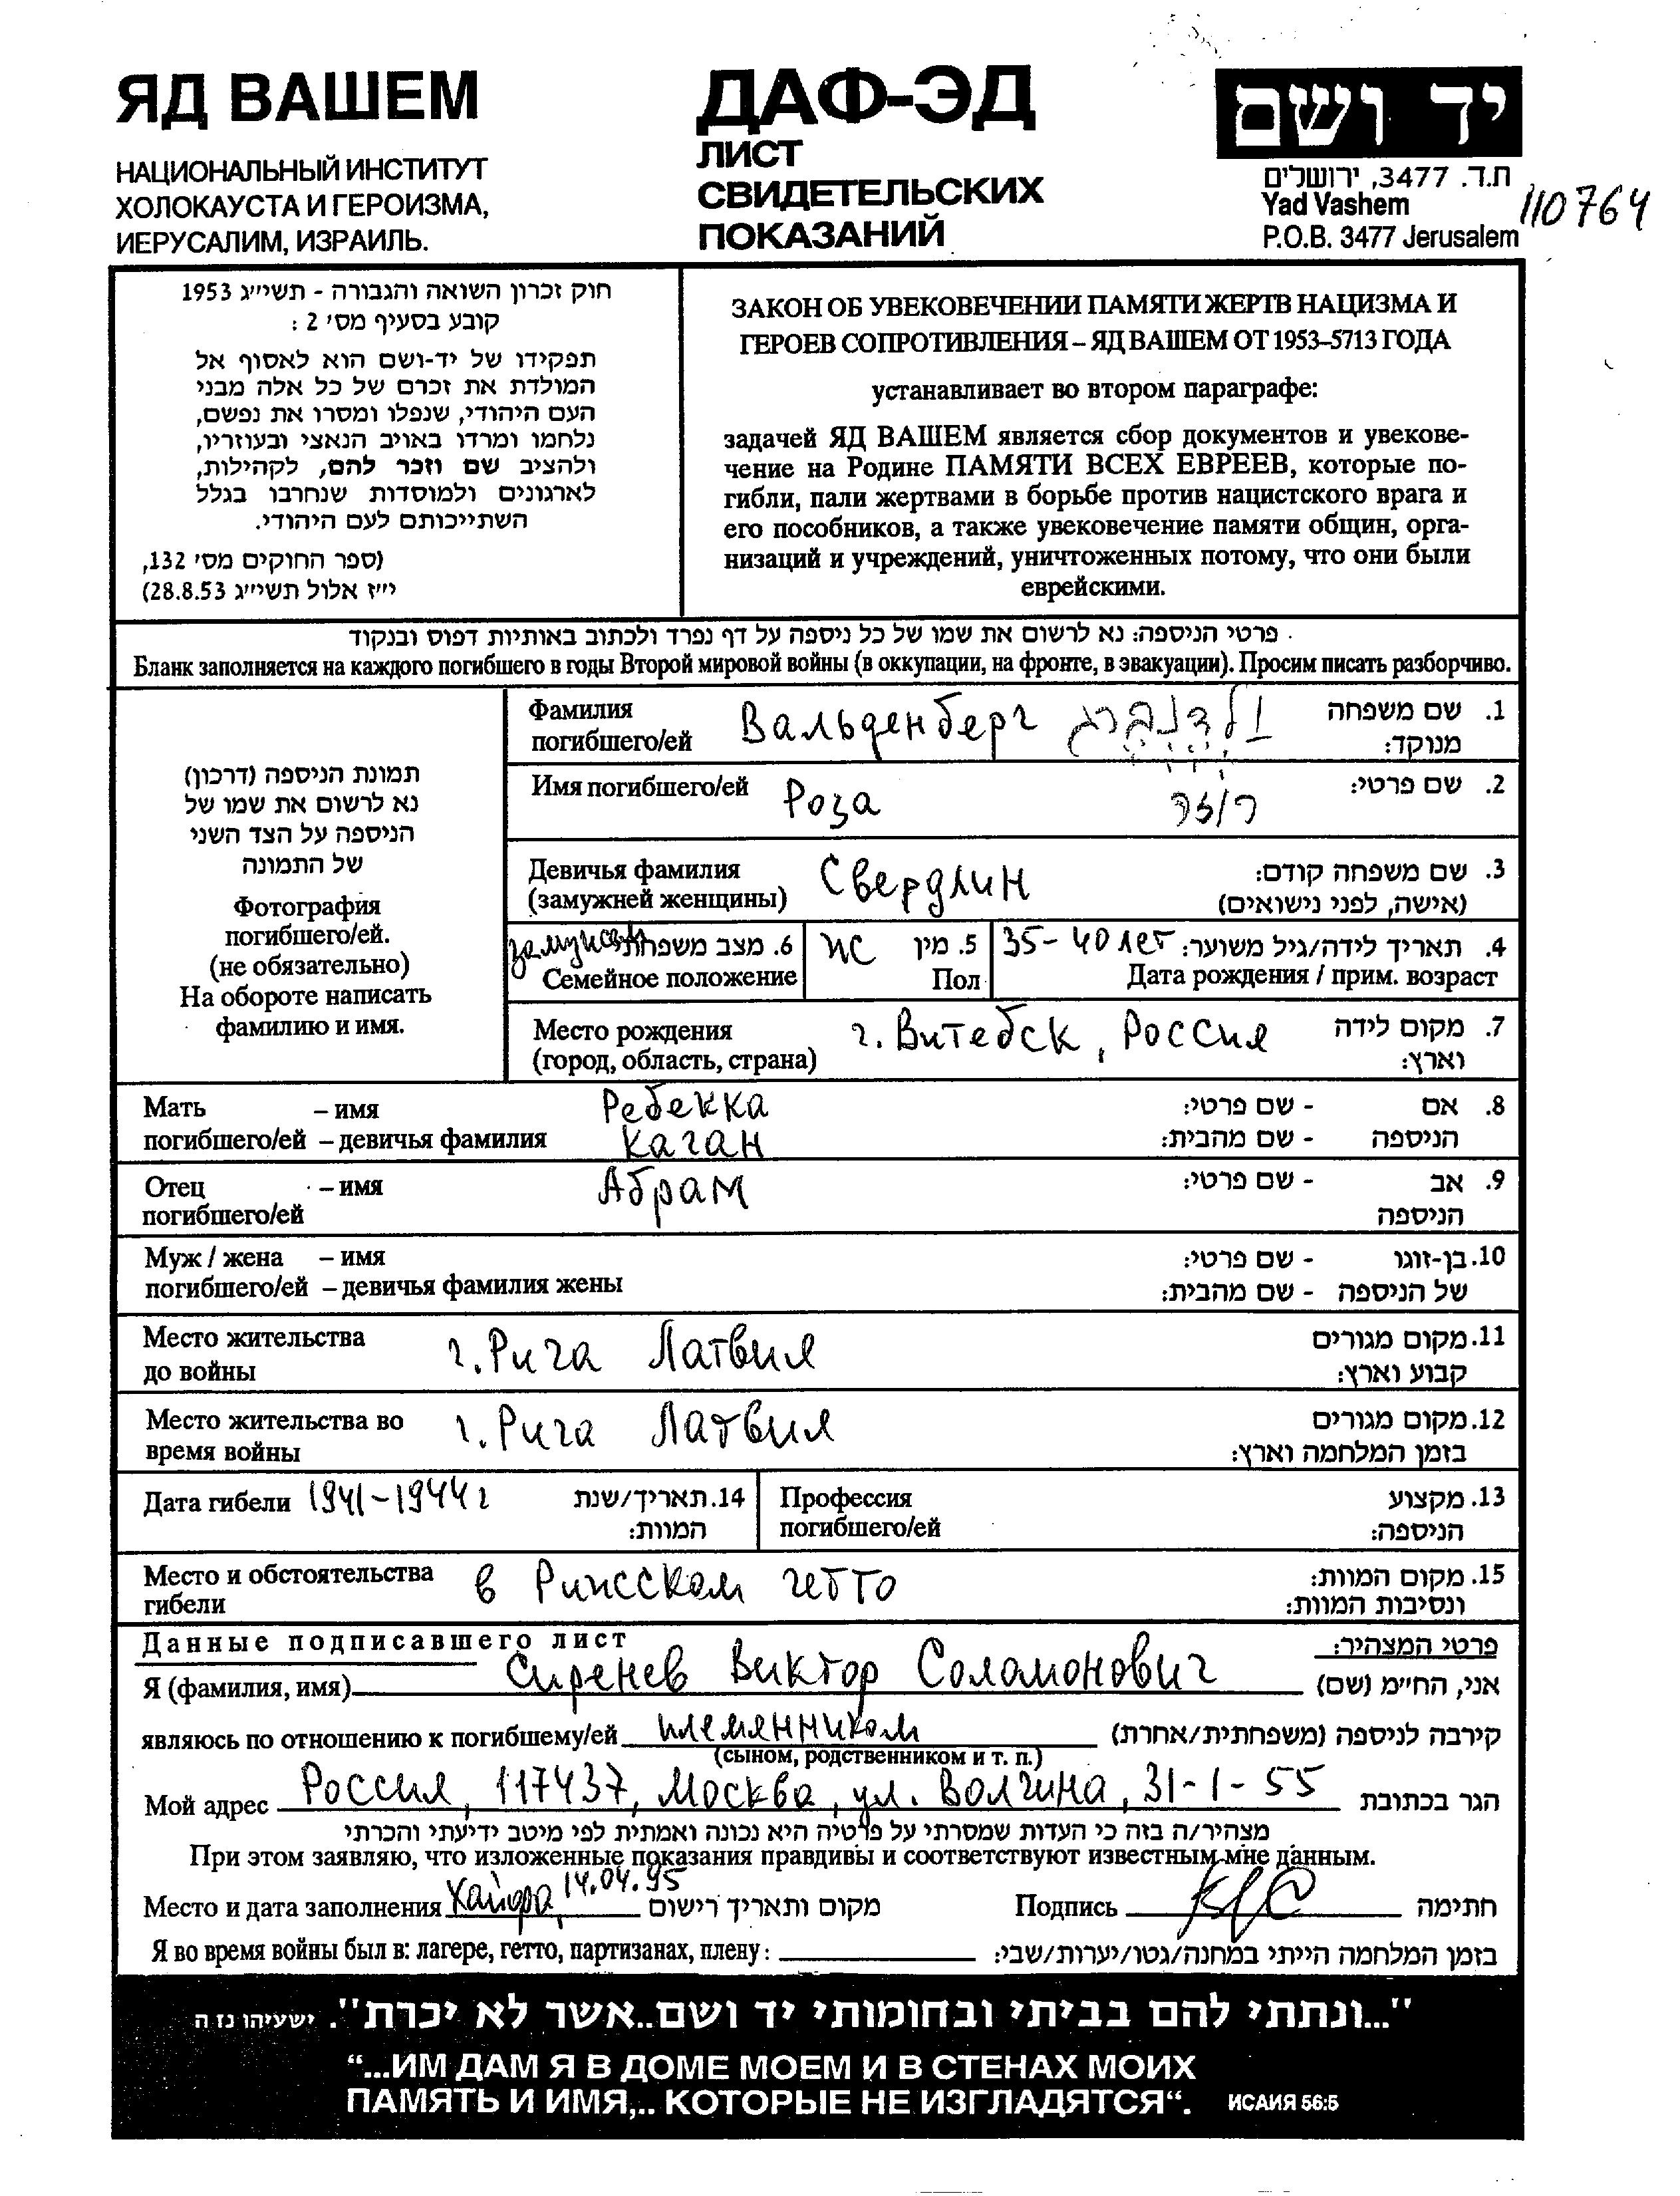 ЯД ВАШЕМ
НАЦИОНАЛЬНЫЙ ИНСТИТУТ
ХОЛОКАУСТА И ГЕРОИЗМА,
ИЕРУСАЛИМ, ИЗРАИЛЬ.
ДАФ-ЭД
ЛИСТ
СВИДЕТЕЛЬСКИХ
ПОКАЗАНИЙ
יד ושם
ת.ד. 3477, ירושלים
Yad Vashem
P.O.B. 3477 Jerusalem
110764
חוק זכרון השואה והגבורה - תשי״ג 1953
קובע בסעיף מס׳ 2 :
תפקידו של יד-ושם הוא לאסוף אל
המולדת את זכרם של כל אלה מבני
העם היהודי, שנפלו ומסרו את נפשם,
נלחמו ומרדו באויב הנאצי ובעוזריו,
ולהציב שם וזכר להם, לקהילות,
לארגונים ולמוסדות שנחרבו בגלל
השתייכותם לעם היהודי.
(ספר החוקים מס׳ 132,
י״ז אלול תשי״ג 28.8.53)
ЗАКОН ОБ УВЕКОВЕЧЕНИИ ПАМЯТИ ЖЕРТВ НАЦИЗМА И
ГЕРОЕВ СОПРОТИВЛЕНИЯ – ЯД ВАШЕМ ОТ 1953–5713 ГОДА
устанавливает во втором параграфе:
задачей ЯД ВАШЕМ является сбор документов и увекове-
чение на Родине ПАМЯТИ ВСЕХ ЕВРЕЕВ, которые по-
гибли, пали жертвами в борьбе против нацистского врага и
его пособников, а также увековечение памяти общин, орга-
низаций и учреждений, уничтоженных потому, что они были
еврейскими.
פרטי הניספה: נא לרשום את שמו של כל ניספה על דף נפרד ולכתוב באותיות דפוס ובנקוד
Бланк заполняется на каждого погибшего в годы Второй мировой войны (в оккупации, на фронте, в эвакуации). Просим писать разборчиво.
תמונת הניספה (דרכון)
נא לרשום את שמו של
הניספה על הצד השני
של התמונה
Фотография
погибшего/ей.
(не обязательно)
На обороте написать
фамилию и имя.
Фамилия Вальденберг ולדנברג 1. שם משפחה
погибшего/ей מנוקד:
Имя погибшего/ей Роза רוזה 2. שם פרטי:
Девичья фамилия Свердлин 3. שם משפחה קודם:
(замужней женщины) (אישה, לפני נישואים)
замужем 6. מצב משפחתי ж 5. מין 35-40 лет 4. תאריך לידה/גיל משוער:
Семейное положение Пол Дата рождения / прим. возраст
Место рождения г. Витебск, Россия 7. מקום לידה
(город, область, страна) וארץ:
Мать – имя Ребекка 8. אם - שם פרטי:
погибшего/ей – девичья фамилия Каган הניספה - שם מהבית:
Отец – имя Абрам 9. אב - שם פרטי:
погибшего/ей הניספה
Муж / жена – имя 10. בן-זוגו - שם פרטי:
погибшего/ей – девичья фамилия жены של הניספה - שם מהבית:
Место жительства г. Рига Латвия 11. מקום מגורים
до войны קבוע וארץ:
Место жительства во г. Рига Латвия 12. מקום מגורים
время войны בזמן המלחמה וארץ:
Дата гибели 1941-1944 г 14. תאריך/שנת
המוות:
Профессия 13. מקצוע
погибшего/ей הניספה:
Место и обстоятельства в Рижском гетто 15. מקום המוות:
гибели ונסיבות המוות:
Данные подписавшего лист פרטי המצהיר:
Я (фамилия, имя) Сиренев Виктор Соламонович אני, הח״מ (שם)
являюсь по отношению к погибшему/ей племянником קירבה לניספה (משפחתית/אחרת)
(сыном, родственником и т. п.)
Мой адрес Россия, 117437, Москва, ул. Волгина, 31-1-55 הגר בכתובת
מצהיר/ה בזה כי העדות שמסרתי על פרטיה היא נכונה ואמתית לפי מיטב ידיעתי והכרתי
При этом заявляю, что изложенные показания правдивы и соответствуют известным мне данным.
Место и дата заполнения Хайфа, 14.04.95 מקום ותאריך רישום Подпись חתימה
Я во время войны был в: лагере, гетто, партизанах, плену: בזמן המלחמה הייתי במחנה/גטו/יערות/שבי:
"...ונתתי להם בביתי ובחומותי יד ושם..אשר לא יכרת". ישעיהו נו ה
“...ИМ ДАМ Я В ДОМЕ МОЕМ И В СТЕНАХ МОИХ
ПАМЯТЬ И ИМЯ,.. КОТОРЫЕ НЕ ИЗГЛАДЯТСЯ“. ИСАИЯ 56:5